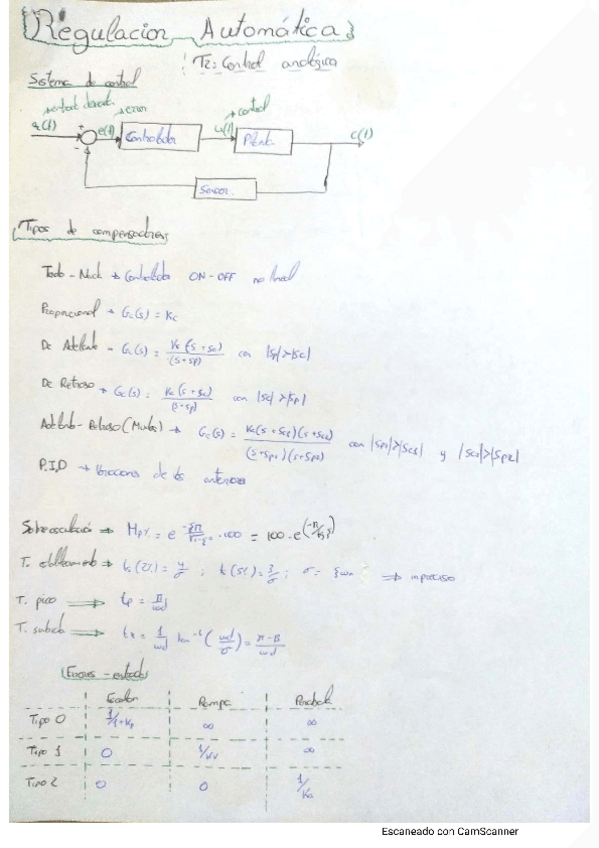 Regulacion Automática
T2: Control analógico
Sistema de control
→ entrada deseada → error → control
e(t) u(t) c(t)
Controlador Planta
Sensor
Tipos de compensadores:
Todo-Nada → Controlador ON-OFF no lineal
Proporcional → Gc(s) = Kc
De Adelanto → Gc(s) = Kc(s+sc)/(s+sp) con |sp|>|sc|
De Retraso → Gc(s) = Kc(s+sc)/(s+sp) con |sc|>|sp|
Adelanto-Retraso (Mixtos) → Gc(s) = Kc(s+sc1)(s+sc2)/(s+sp1)(s+sp2) con |sp1|>|sc1| y |sc2|>|sp2|
P,I,D → de los anteriores
Sobreoscilación → Mp% = ·100 = 100·e
T. establecimiento → ts(2%) = 4/σ ; ts(5%) = 3/σ ; σ = ξωn ⇒ impreciso
T. pico ⇒ tp = π/ωd
T. subida ⇒ tr = 1/ωd tan⁻¹(ωd/σ) = π-β/ωd
Errores - entrada
Escalon Rampa Parábola
Tipo 0 1/1+Kp ∞ ∞
Tipo 1 0 1/Kv ∞
Tipo 2 0 0 1/Ka
Escaneado con CamScanner